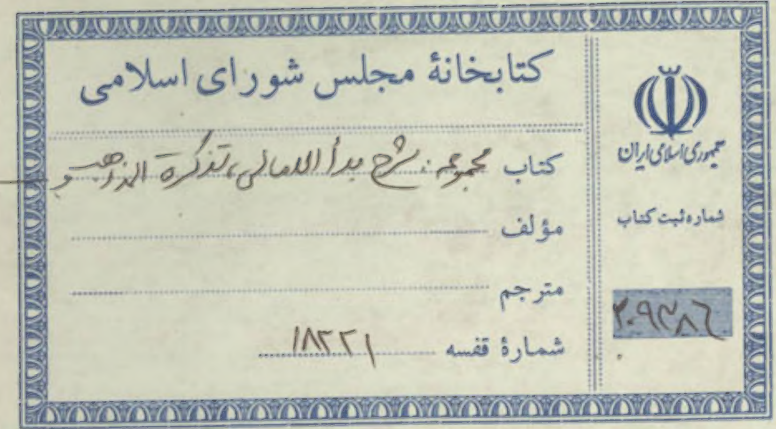 کتابخانهٔ مجلس شورای اسلامی
کتاب مجموعه: شرح بدأ الامالی، تذکرة المذاهب و
مؤلف
مترجم
شمارهٔ قفسه ۱۸۲۲۱
جمهوری اسلامی ایران
شماره ثبت کتاب
۲۰۹۳۸۶